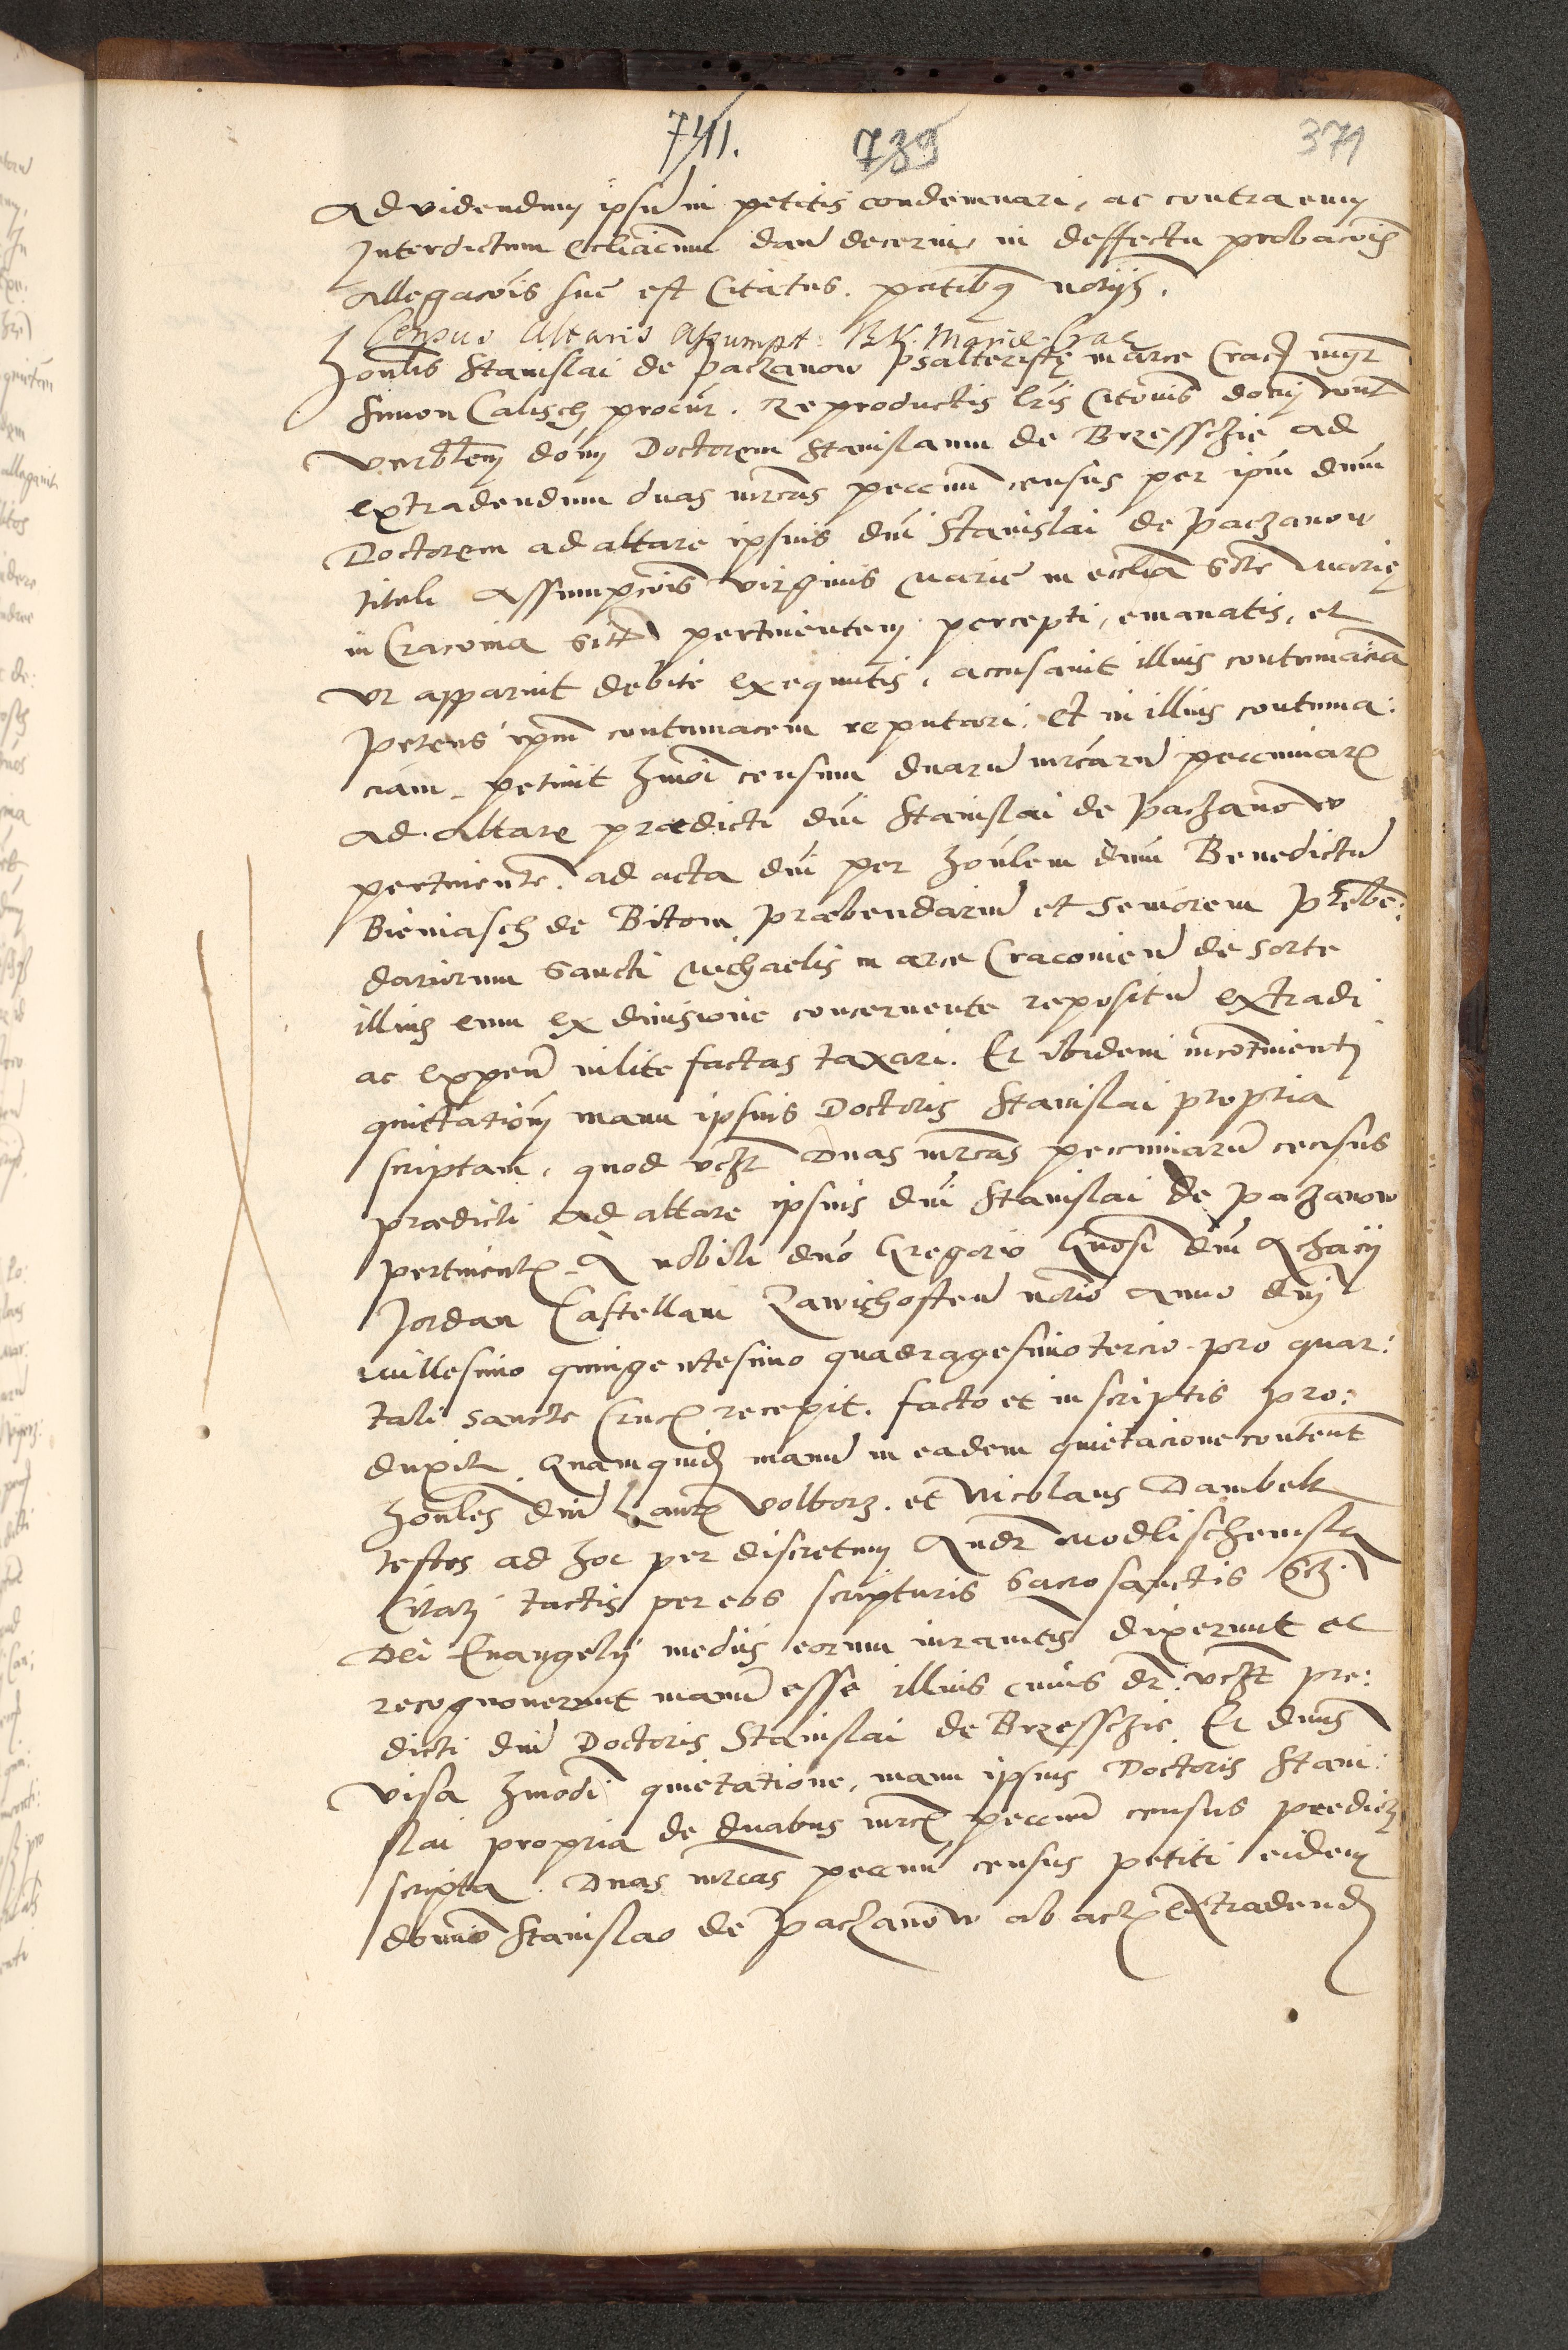 741. 739 371
Ad videndum ipsum in petitis condemnari, ac contra eum
Interdictum eccliaicum dari decerni, in deffectu probacois
allegacois sue est Citatus. partibus notijs.
Census Altaris Assumpt. B.V. Mariae Crac
Honlis Stanislai de Paczanow psalteriste in arce Crac mgr
Simon Calisch procur. Reproductis lris Citonis
Doctorem Stanislaum de Brzesschie ad
extradendum duas mrcas peccun census per ipm dnm
Doctorem ad altare ipsius dni Stanislai de Paczanow
tituli Assumpcois virginis Marie in ecclia Scte Marie
in Cracovia sitt pertinentem percepti, emanatis, et
ut apparuit debite exequutis, accusavit illius contumaciam
petens ipm contumacem reputari. Et in illius contuma:
ciam petivit hmoi censum duaru mrcaru peccuniar
ad altare praedicti dni Stanislai de Paczanow
pertinente ad acta dni per honlem dnm Benedictu
Bieniasch de Bitom praebendariu et Seniorem prebe:
dariorum Sancti Michaelis in arce Cracovien de sorte
illius eum ex divisione concernente repositu extradi
ac expen in lite factas taxari. Et ibidem incontinenti
quittationem manu ipsius Doctoris Stanislai propria
scriptam, quod vcz Duas mrcas peccuniaru census
praedicti ad altare ipsius dni Stanislai de Paczanow
pertinent A nobili dno Gregorio dni Achacij
Jordan Castellani Zawichosten anno dnj
millesimo quingentesimo quadragesimo tercio pro quar:
tali sancte Crucis recepit. facto et in scriptis pro:
duxit. Quamquid manu in eadem quietacione content
Honles dni Laur Volborz. et Nicolaus Dambek
testes ad hoc per discretum Andr Modlischewsky
Citati tactis per eos scripturis Sacrosanctis
Dei Evangelij mediis eorum iuramentis dixerunt et
recognoverunt manu esse illius cuius dr. vczt pre:
dicti dni Doctoris Stanislai de Brzesschie Et dnus
visa hmodi quietatione, manu ipsius Doctoris Stani:
slai propria de duabus mrcis peccun census predict
scripta. Duas mrcas peccun census petiti eidem
domino Stanislao de Paczanow ab actis extradend